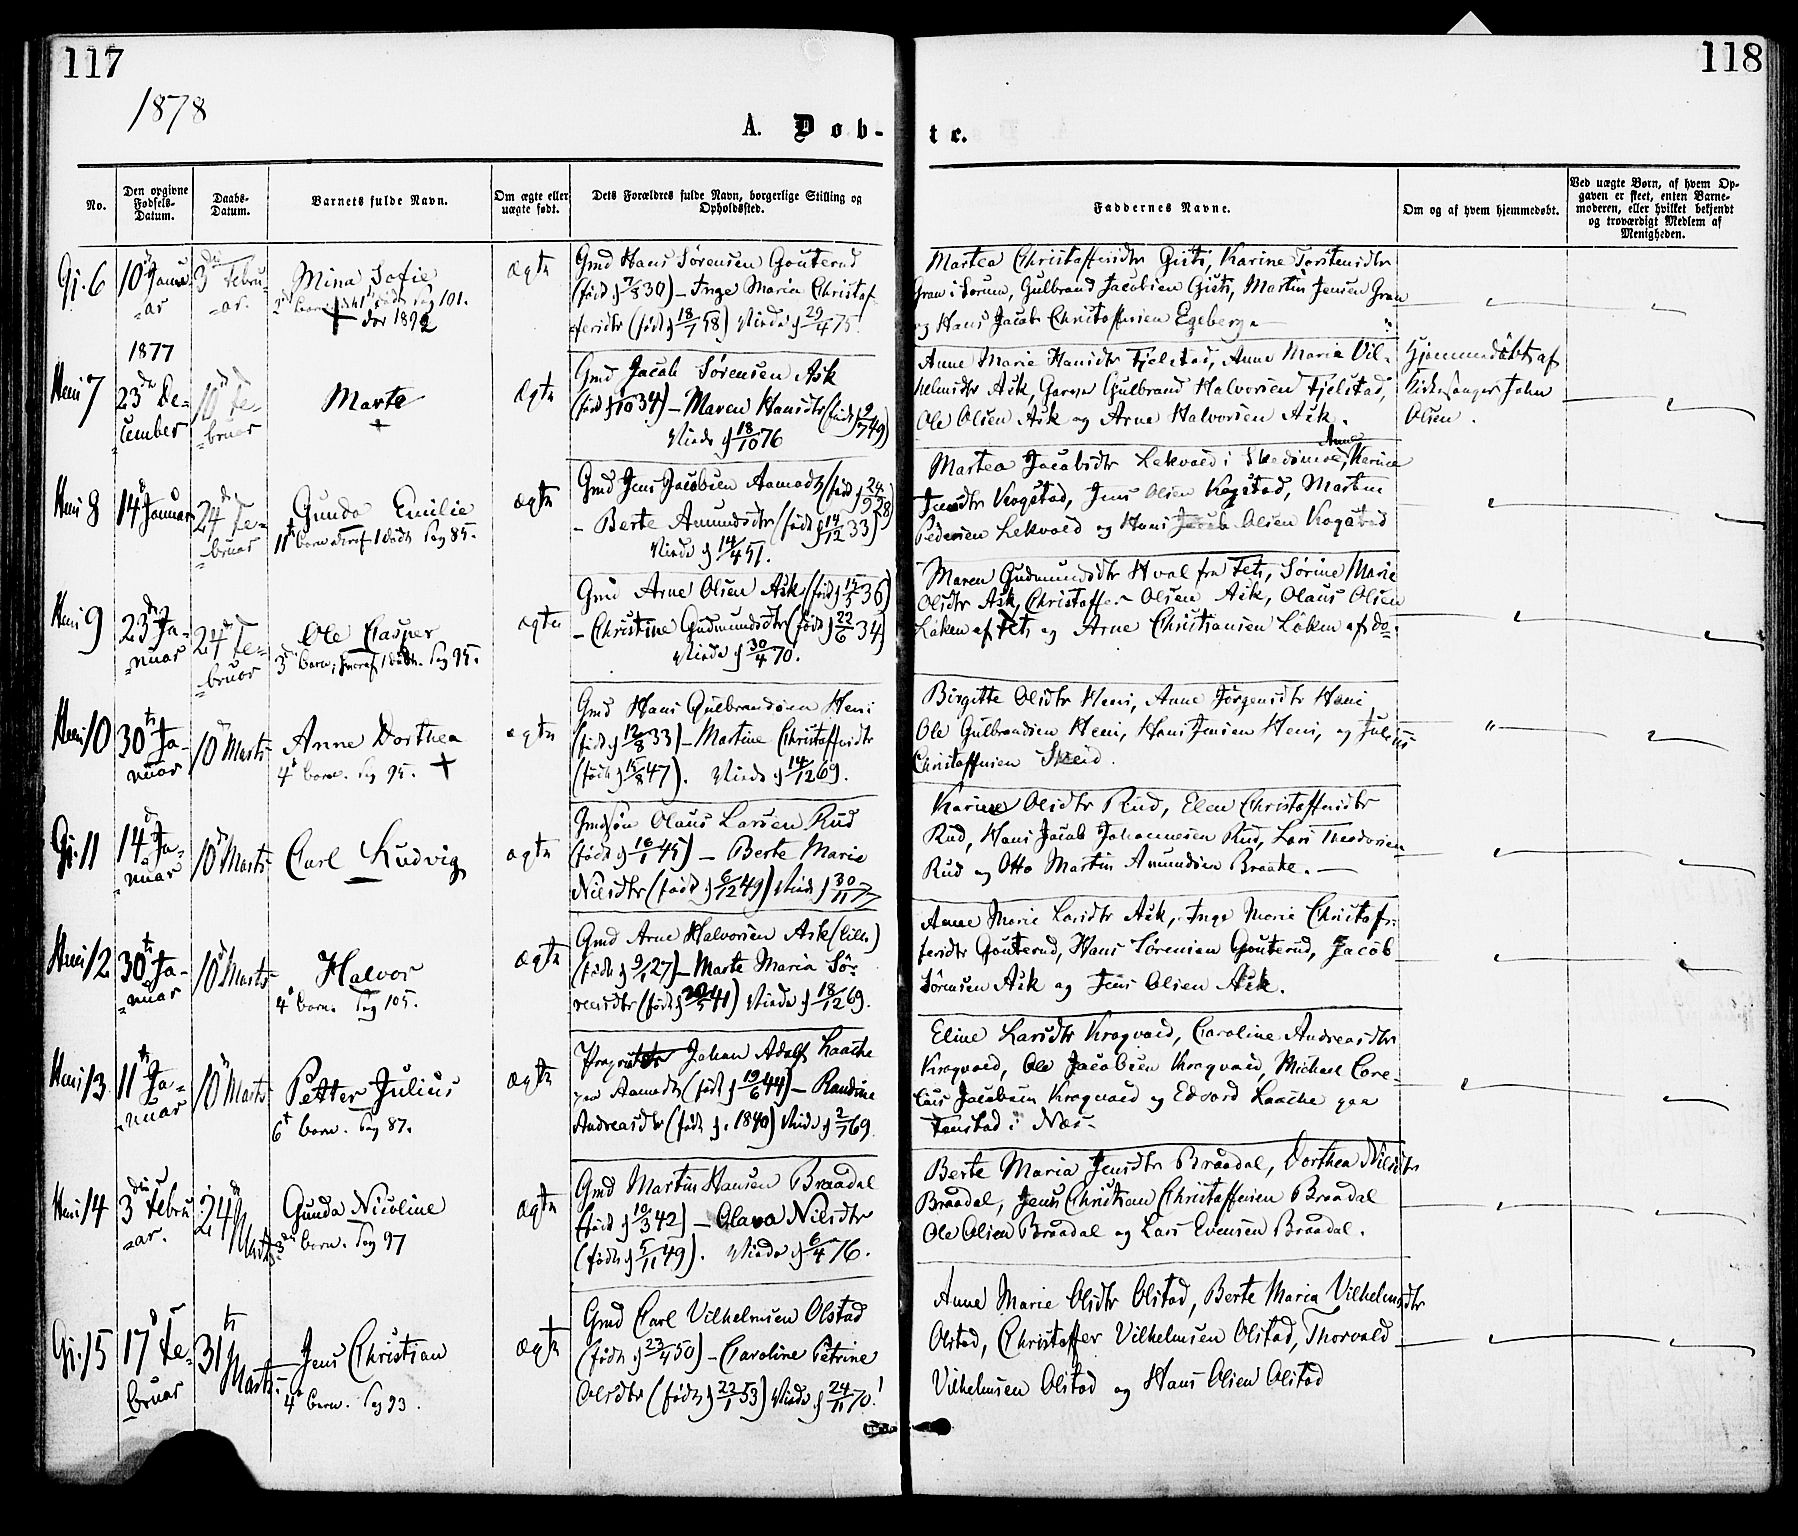 117
118
1878
A. Døb-
te.
No.
Den opgivne Fødsels-Datum.
Daabs-Datum.
Barnets fulde Navn.
Om ægte eller uægte født.
Dets Forældres fulde Navn, borgerlige Stilling og Opholdssted.
Faddernes Navne.
Om og af hvem hjemmedøbt.
Ved uægte Børn, af hvem Opgaven er skeet, enten Barnemoderen, eller hvilket bekjendt og troværdigt Medlem af Menigheden.
Gj. 6
10 Januar
3 Februar.
Mina Sofie
Pag 101.
+ dør 1892
ægte
Gmd Hans Sørensen Gouterud
(født 7/3 30) – Inge Maria Christof
feridtr (født 18/1 58) Viede 29/4 75.
Martea Christoffersdtr Gisti, Karine Torstensdtr
Gran i Sørum, Gulbrand Jacobsen Gisti, Martin Jensen Gran
og Hans Jacob Christoffersen Egeberg
Heni 7
1877
23 De-
cember
10 Fe-
bruar
Marte
+
ægte
Gmd Jacob Sørensen Ask
– Maren Hansdtr
Viede 18/10 76
Anne Marie Hansdtr Fjelstad, Anne Maria Vil-
helmsdtr Ask, Gulbrand Halvorsen Fjelstad,
Ole Olsen Ask og Arne Halvorsen Ask.
Hjemmedøbt af
Kirkesanger John
Olsen.
Heni 8
14 Januar
24 Fe-
bruar
Gunda Emilie
11 barn Pag 85.
ægte
Gmd Jens Jacobsen Aamodt (født 24/9 28)
– Berte Amundsdtr (født 14/12 33)
Viede 14/4 51.
Martea Jacobsdtr Lekvold i Skedsmoe, Anne Karine
Jensdtr Kogstad, Jens Olsen Kogstad, Martin
Pedersen Lekvold og Hans Jacob Olsen Kogstad
Heni 9
23 Ja-
nuar
24 Fe-
bruar
Ole Casper
3 barn, Pag 95.
ægte
Gmd Arne Olsen Ask (født 15/5 36)
– Christine Gudmundsdtr (født 22/6 34)
Viede 30/4 70.
Maren Gudmundsdtr Hval fra Fet, Sørine Marie
Olsdtr Ask, Christoffer Olsen Ask, Olaus Olsen
Løken af Fet og Arne Christiansen Løken af do.
Heni 10
30 Ja-
nuar
10 Marts
Anne Dorthea
4 barn. Pag 95. +
ægte
Gmd Hans Gulbrandsen Heni
(født 12/8 33) – Martine Christoffersdtr
(født 15/8 47). Viede 14/12 69.
Birgitte Olsdtr Heni, Anne Jørgensdtr Heni
Ole Gulbrandsen Heni, Hans Jensen Heni, og Julius
Christoffersen Skeid.
Gj. 11
14 Ja-
nuar
10 Marts
Carl Ludvig
ægte
Gmdsøn Olaus Larsen Rud
(født 16/1 45) – Berte Marie
Nilsdtr (født 6/12 49) Viede 30/11 77
Karine Olsdtr Rud, Elen Christoffersdtr
Rud, Hans Jacob Johannesen Rud, Lars Theodorsen
Rud og Otto Martin Amundsen Braate.
Heni 12
30 Ja-
nuar
10 Marts
Halvor
4 barn. Pag 105.
ægte
Gmd Arne Halvorsen Ask (lille)
(født 9/1 27) – Marte Maria Sø-
rensdtr (født 41) Viede 18/12 69.
Anne Marie Larsdtr Ask, Inge Marie Christof-
fersdtr Gouterud, Hans Sørensen Gouterud, Jacob
Sørensen Ask og Jens Olsen Ask.
Heni 13
11 Ja-
nuar
10 Marts
Petter Julius
6 barn. Pag 87.
ægte
Johan Adolf Laache
paa Aamodt (født 19/6 44) – Randine
Andreasdtr (født 1840) Viede 2/7 69.
Eline Larsdtr Krogvold, Caroline Andreasdtr
Krogvold, Ole Jacobsen Krogvold, Michael Core-
lius Jacobsen Krogvold og Edvard Laache paa
Fonstad i Næs
Heni 14
3 Febru
ar.
24 Marts
Gunda Nicoline
3 barn. Pag 97
ægte
Gmd Martin Hansen Braadal
(født 10/3 42) – Olava Nilsdtr
(født 5/11 49). Viede 6/4 76.
Berte Maria Jensdtr Braadal, Dorthea Nilsdtr
Braadal, Jens Christian Christoffersen Braadal
Ole Olsen Braadal og Lars Evensen Braadal.
Gj. 15
17 Fe-
bruar
31 Marts
Jens Christian
4 barn. Pag 93.
+
ægte
Gmd Carl Vilhelmsen Olstad
(født 23/4 50) – Caroline Petrine
Olsdtr (født 22/1 53) Viede 24/11 70!
Anne Marie Olsdtr Olstad, Berte Maria Vilhelmsdtr
Olstad, Christoffer Vilhelmsen Olstad, Thorvald
Vilhelmsen Olstad og Hans Olsen Olstad